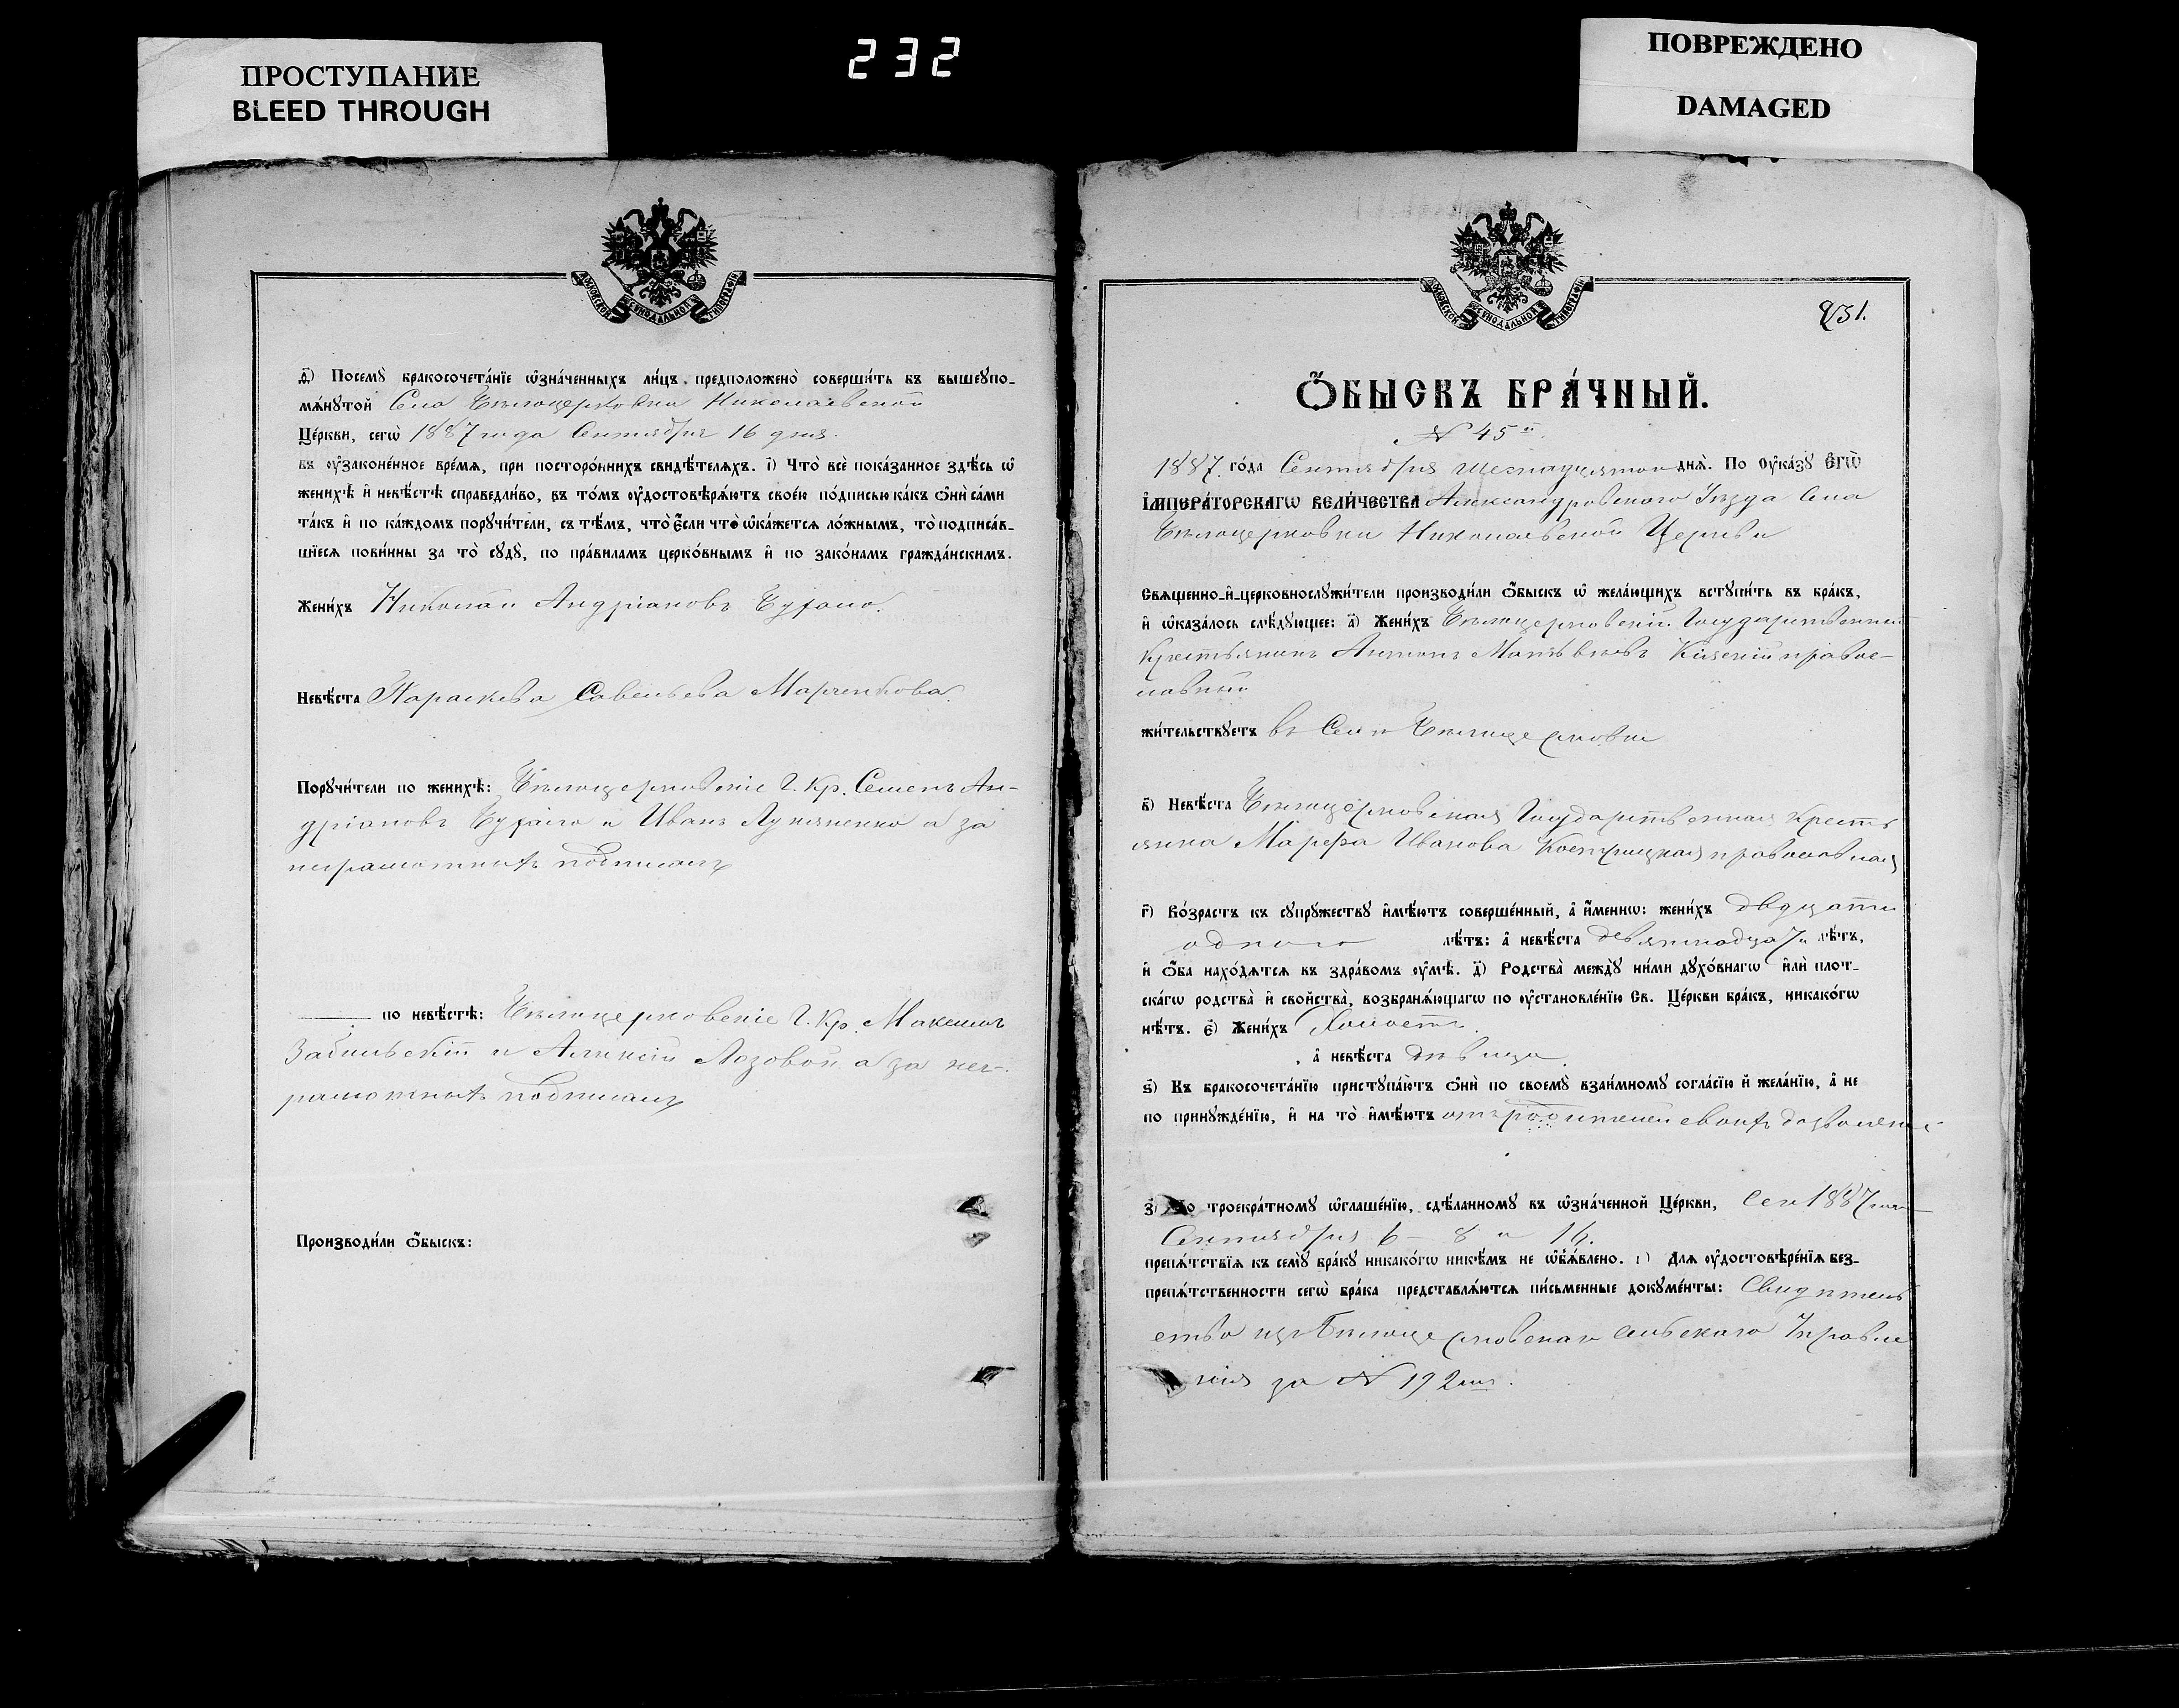 ПРОСТУПАНИЕ
BLEED THROUGH
232
ПОВРЕЖДЕНО
DAMAGED
МОСКОВСКОЙ СѴНОДАЛЬНОЙ ТИПОГРАФІИ
ѳ҃) Посемꙋ̀ бракосочета́нїе ѡ҆зна́ченныхъ ли́цъ предположено̀ соверши́ть въ вышеꙋпо-
мѧ́нꙋтой Села Бѣлоцерковки Николаевской
Це́ркви, сегѡ̀ 1887 года Сентября 16 дня.
въ ᲂу҆зако́ненное вре́мѧ, при посторо́ннихъ свидѣ́телѧхъ. і҃) Что̀ всѐ пока́занное здѣ́сь ѡ҆
женихѣ̀ и҆ невѣ́стѣ справедли́во, въ то́мъ ᲂу҆достовѣрѧ́ютъ свое́ю по́дписью ка́къ ѻ҆нѝ са́ми
та́къ и҆ по ка́ждомъ порꙋчи́тели, съ тѣ́мъ, что̀ є҆́сли что̀ ѡ҆ка́жетсѧ ло́жнымъ, то̀ подписа́в-
шїесѧ пови́нны за то̀ сꙋдꙋ̀, по пра́виламъ церко́внымъ и҆ по зако́намъ гражда́нскимъ.
Жени́хъ Николай Андріановъ Бугаіо.
Невѣ́ста Параскева Савельева Марченкова.
Порꙋчи́тели по женихѣ̀: Бѣлоцерковскіе Г. Кр. Семенъ Ан-
дріановъ Бугаіо и Иванъ Лукяненко а за
неграмотныхъ подписалъ
по невѣ́стѣ: Бѣлоцерковскіе Г. Кр. Максимъ
и Алексій Лозовой а за нег-
рамотныхъ подписалъ
Производи́ли ѻ҆́быскъ:
МОСКОВСКОЙ СѴНОДАЛЬНОЙ ТИПОГРАФІИ
231.
Ѻ҆́БЫСКЪ БРА́ЧНЫЙ.
№ 45й.
1887 го́да Сентября шеснадцятои днѧ̀. По ᲂу҆ка́зꙋ Є҆гѡ̀
І҆мпера́торскагѡ вели́чества Александровского Уезда Села
Бѣлоцерковки Николаевской Церкви
Свѧщенно-и҆-церковнослꙋжи́тели производи́ли ѻ҆́быскъ ѡ҆ жела́ющихъ встꙋпи́ть въ бра́къ,
и҆ ѡ҆каза́лось слѣ́дꙋющее: а҃) Жени́хъ Бѣлоцерковскій Государственный
Крестьянинъ Антонъ правос-
лавный
жи́тельствꙋетъ въ Селѣ Бѣлоцерковки
в҃) Невѣ́ста Бѣлоцерковская Государственная Кресть
янка Марфа Иванова православная
г҃) Во́зрастъ къ сꙋпрꙋ́жествꙋ и҆мѣ́ютъ соверше́нный, а҆ и҆́меннѡ: жени́хъ двдцати
одного лѣ́тъ: а҆ невѣ́ста девятнадцати лѣ́тъ,
и҆ ѻ҆́ба нахо́дѧтсѧ въ здра́вомъ ᲂу҆мѣ̀. д҃) Родства̀ междꙋ̀ ни́ми дꙋхо́внагѡ и҆лѝ плот-
ска́гѡ родства̀ и҆ свойства̀, возбранѧ́ющагѡ по ᲂу҆становле́нїю Св. Це́ркви бра́къ, никако́гѡ
нѣ́тъ. є҃) Жени́хъ Холостъ.
а҆ невѣ́ста дѣвица.
ѕ҃) Къ бракосочета́нїю пристꙋпа́ютъ ѻ҆нѝ по своемꙋ̀ взаи́мномꙋ согла́сїю и҆ жела́нїю, а҆ не
по принꙋжде́нїю, и҆ на то̀ и҆мѣ́ютъ отъ родителей своихъ дозволение
з҃) По троекра́тномꙋ ѡ҆глаше́нїю, сдѣ́ланномꙋ въ ѡ҆зна́ченной Це́ркви, сего 1887 года
Сентября 6 – 8 и
препѧ́тствїѧ къ семꙋ̀ бра́кꙋ никако́гѡ никѣ́мъ не ѡ҆б̾ѧ́влено. и҃) Длѧ ᲂу҆достовѣре́нїѧ без-
препѧ́тственности сегѡ̀ бра́ка представлѧ́ютсѧ пи́сьменные докꙋме́нты: Свидѣтель
ство изъ Бѣлоцерковскаго сельскаго Управле
нія за № 192мъ.